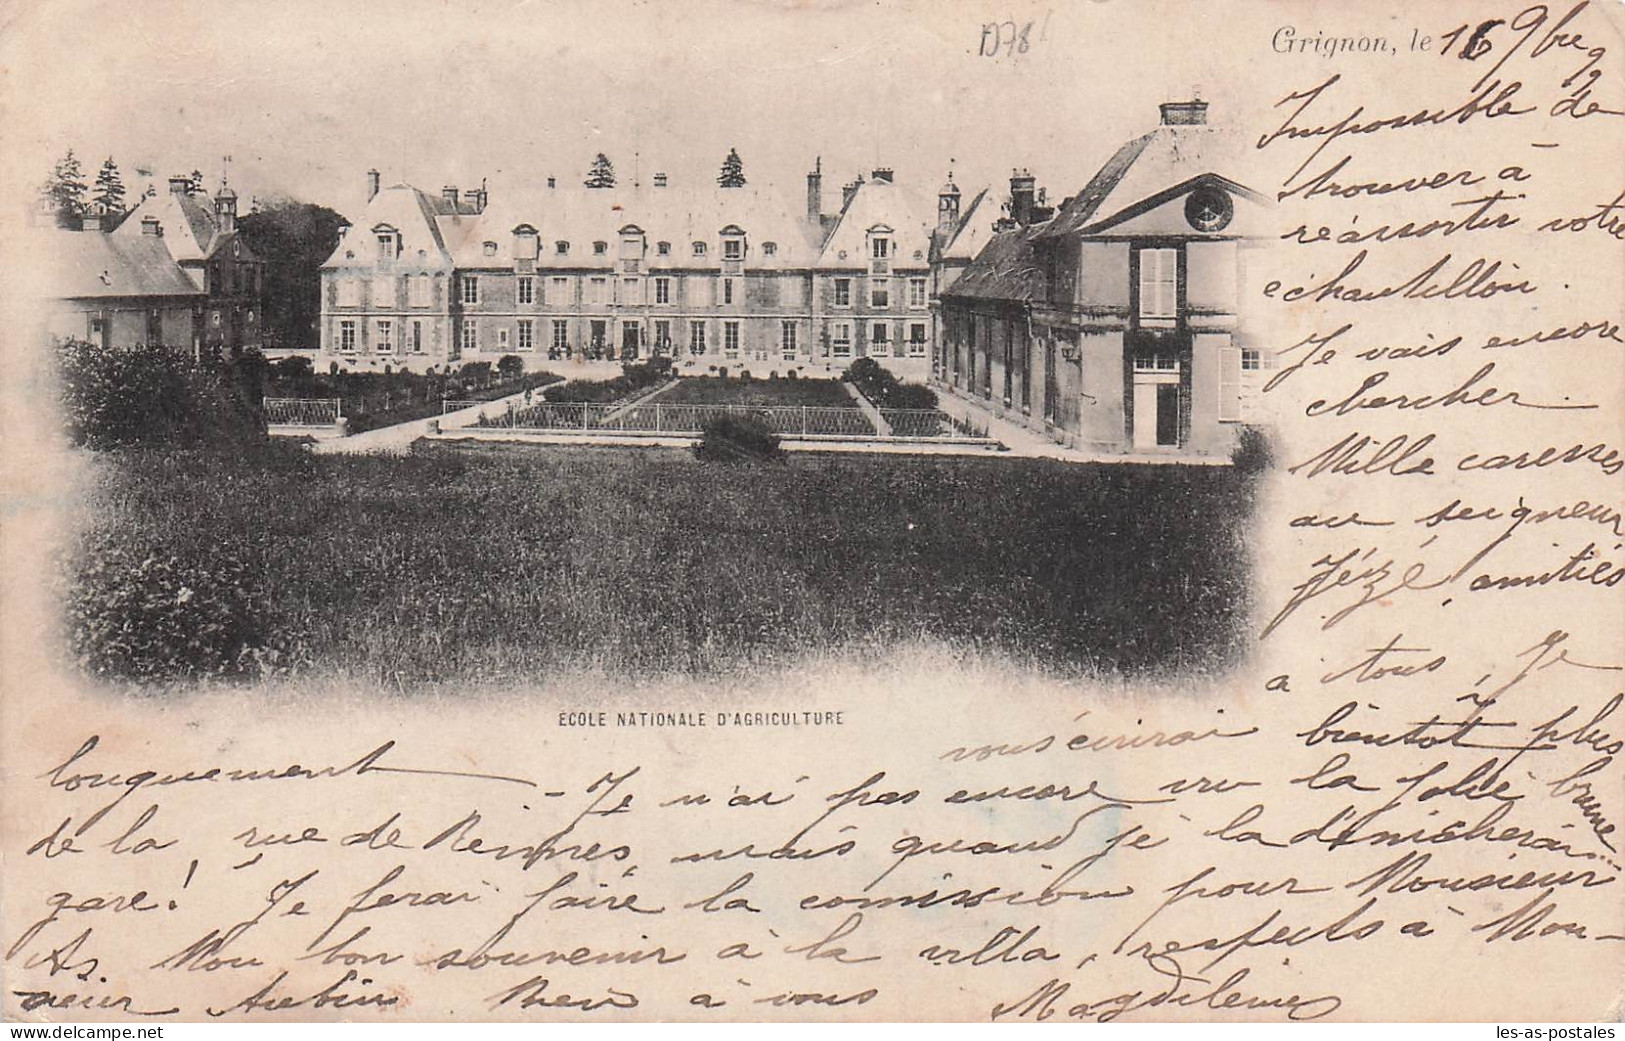 D78
Grignon, le 16 9bre
Impossible de
trouver à
réassortir votre
échantillon.
Je vais encore
chercher.
Mille caresses
au seigneur
Zézé, amitiés
à tous, Je
ÉCOLE NATIONALE D'AGRICULTURE
vous écrirai bientôt plus
longuement - Je n'ai pas encore vu la jolie brune
de la rue de Rennes, mais quand je la dénicherai...
gare! Je ferai faire la comission pour Monsieur
As. Mon bon souvenir à la villa, respects à Mon-
sieur Aubin Bien à vous Magdeleine
les-as-postales.com